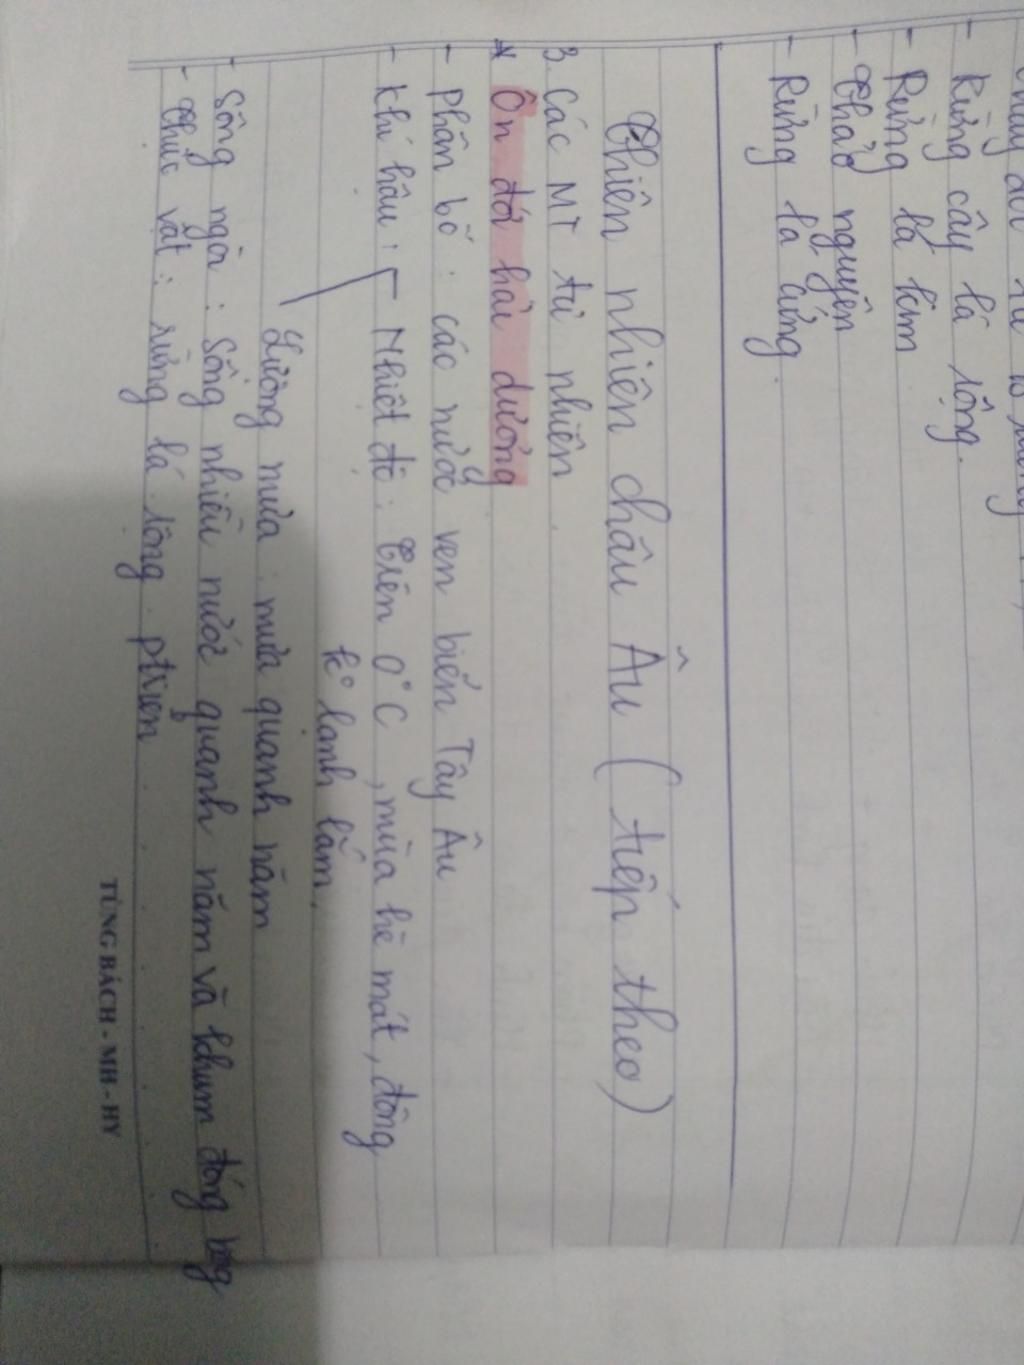 - Rừng cây lá rộng.
- Rừng lá kim
- Thảo nguyên
- Rừng lá cứng.
Thiên nhiên châu Âu (tiếp theo)
3. Các MT tự nhiên
* Ôn đới hải dương
- Phân bố: các nước ven biển Tây Âu
- Khí hậu: Nhiệt độ: Trên 0°C, mùa hè mát, đông
k° lạnh lắm.
Lượng mưa: mưa quanh năm
- Sông ngòi: Sông nhiều nước quanh năm và khum đóng băng
- Thực vật: rừng lá rộng ptriển
TÙNG BÁCH - MH - HY